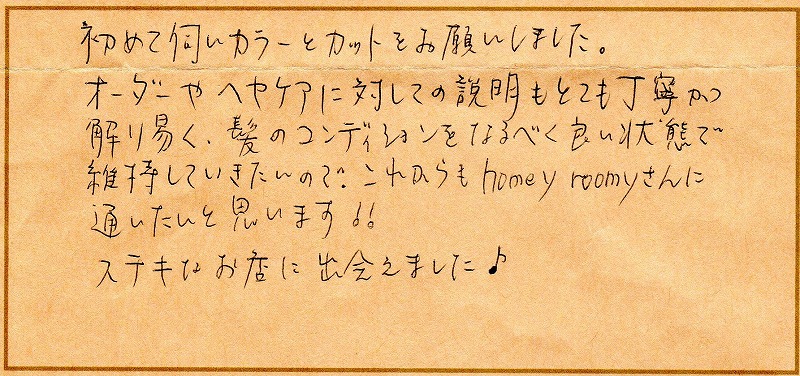 初めて伺いカラーとカットをお願いしました。
オーダーやヘヤケアに対しての説明もとても丁寧かつ
解り易く、髪のコンディションをなるべく良い状態で
維持していきたいので、これからも homey roomyさんに
通いたいと思います!!
ステキなお店に出会えました♪